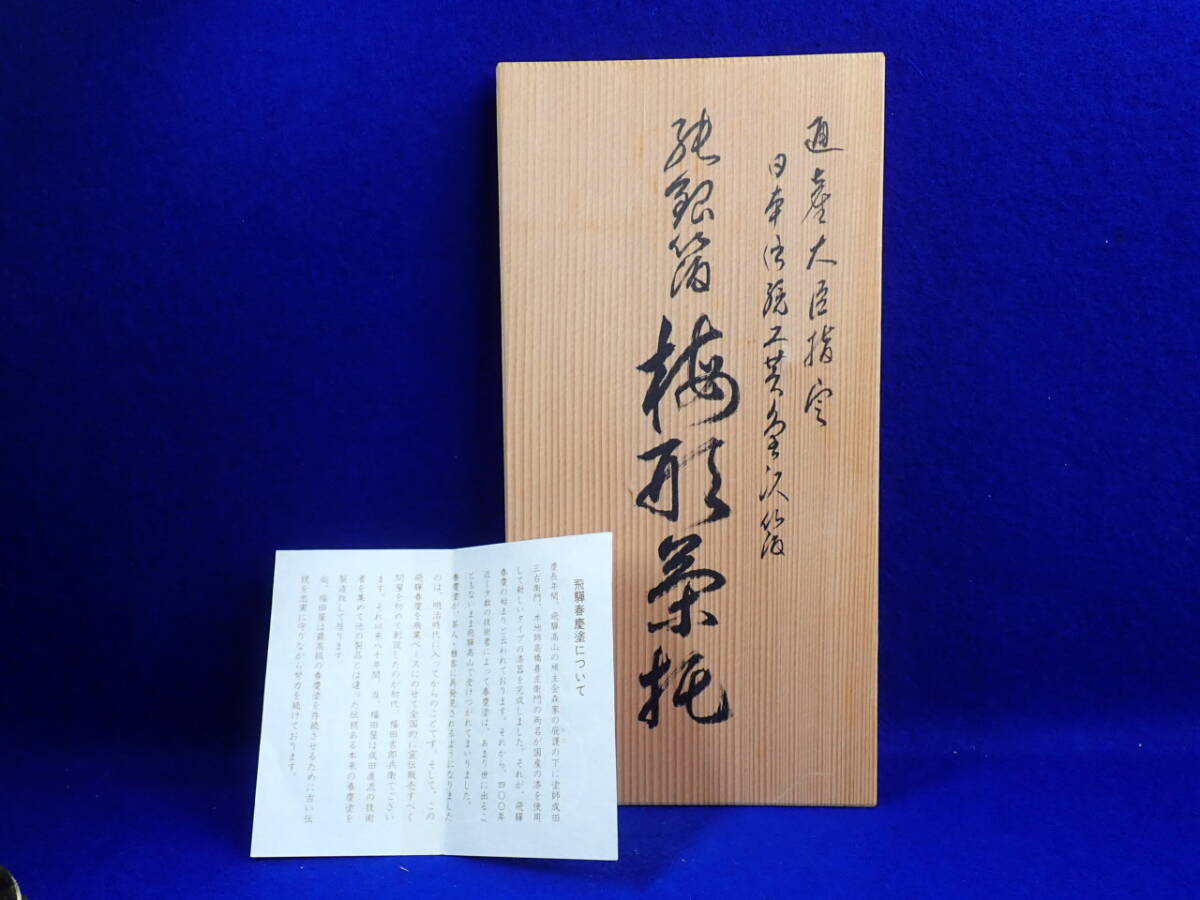 通産大臣指定
日本伝統工芸金沢箔
純銀箔 梅形茶托
飛騨春慶塗について
慶長年間、飛騨高山の城主金森家の庇護の下に塗師成田
三右衛門、木地師高橋喜左衛門の両名が国産の漆を使用
して新しいタイプの漆器を完成しました。それが、飛騨
春慶の始まりと云われております。それから、四〇〇年
近く夛数の技術者によって春慶塗は、あまり世に出るこ
ともないまま飛騨高山で受けつがれてまいりました。
春慶塗が、茶人・雅客に再発見されるようになりました
のは、明治時代に入ってからのことです。そして、この
飛騨春慶を商業ベースにのせて全国的に宣伝販売すべく
問屋を初めて創設したのが初代、福田吉郎兵衛でござい
ます。それ以来八十年間、当、福田屋は成田直流の技術
者を集めて他の製品とは違った伝統ある本来の春慶塗を
製造致して居ります。
尚、福田屋は最高級の春慶塗を存続させるために古い伝
統を忠実に守りながら努力を続けております。